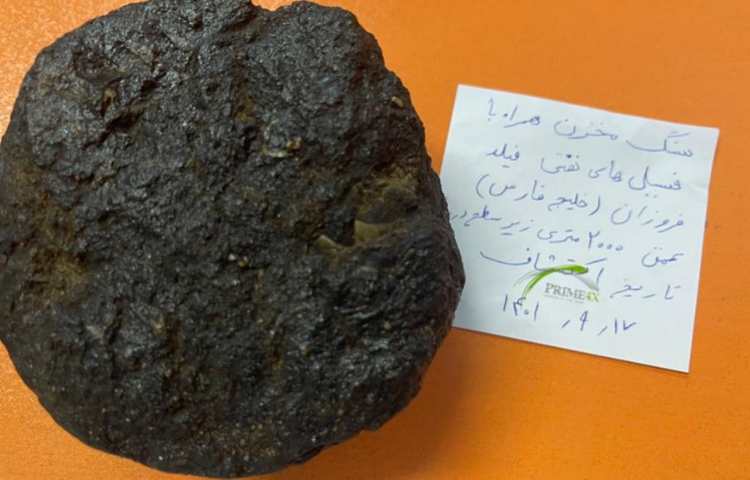 سنگ مخزن همراه با
فسیل های نفتی فیلد
فروزان (خلیج فارس)
عمق ۲۰۰۰ متری زیر سطح در
تاریخ اکتشاف
PRIME4X
۱۴۰۱ ر ۹ ر ۱۷